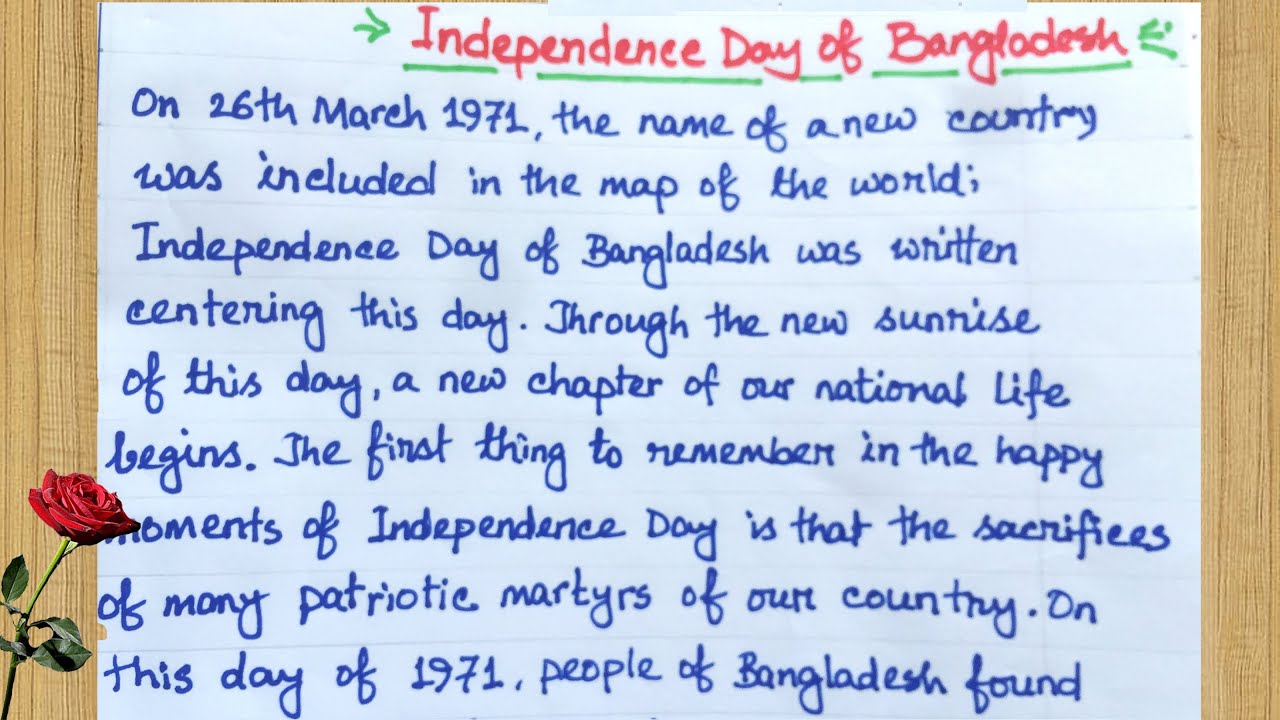 Independence Day of Bangladesh
On 26th March 1971, the name of a new country
was included in the map of the world;
Independence Day of Bangladesh was written
centering this day. Through the new sunrise
of this day, a new chapter of our national life
begins. The first thing to remember in the happy
moments of Independence Day is that the sacrifices
of many patriotic martyrs of our country. On
this day of 1971, people of Bangladesh found